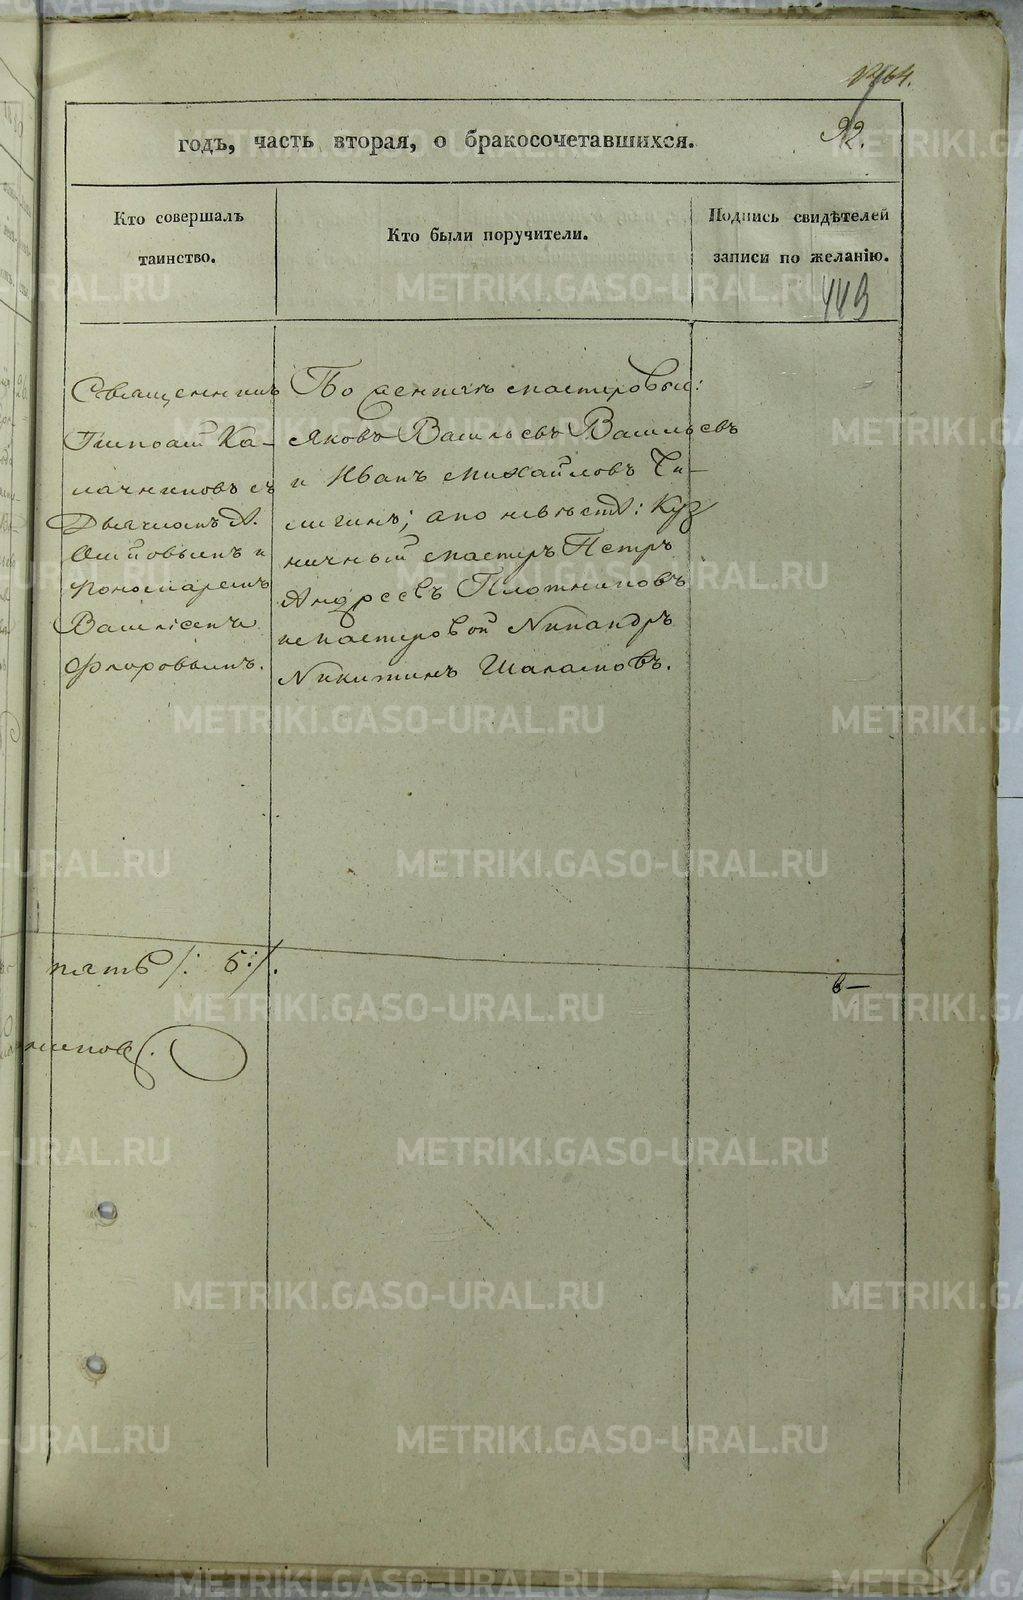 92.
годъ, часть вторая, о бракосочетавшихся.
Кто совершалъ
таинство.
Кто были поручители.
Подпись свидѣтелей
записи по желанію.
443
Священникъ
Ка-
лачниковъ съ
Дьячкомъ А.
Осиповымъ и
Пономаремъ
Васил
Флоровымъ.
По женихѣ мастеровые:
Яковъ Васильевъ Васильевъ
и Иванъ Михайловъ Чи-
; а по невѣстѣ: Куз
ничный мастеръ Петръ
Андреевъ Плотниковъ
и мастеровой Никандръ
Никитинъ Шаламовъ.
пять /: 5 :/.
METRIKI.GASO-URAL.RU